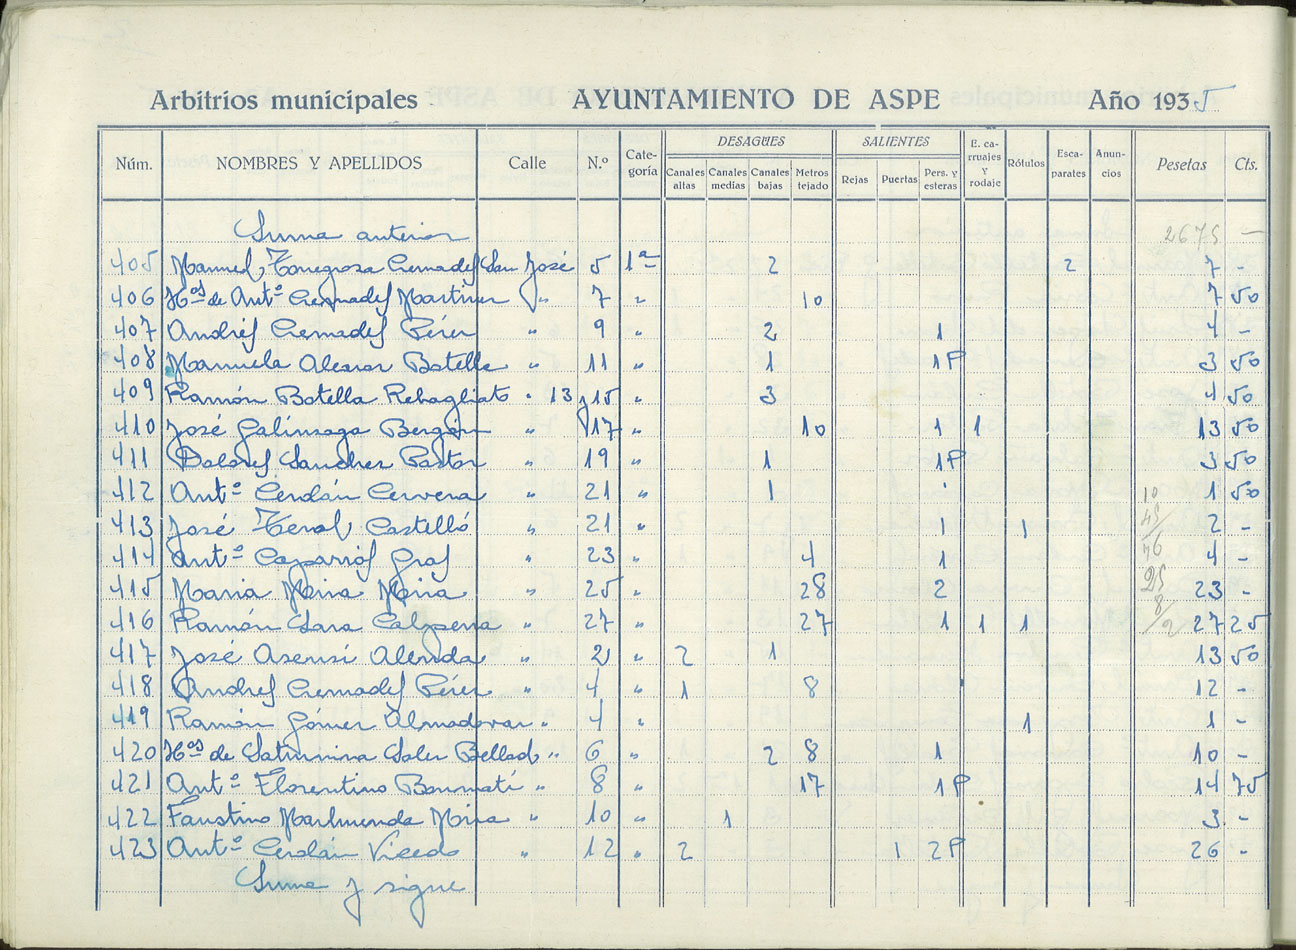 Arbitrios municipales AYUNTAMIENTO DE ASPE Año 1935
DESAGÜES SALIENTES
Núm. NOMBRES Y APELLIDOS Calle N.º Cate-goría Canales altas Canales medias Canales bajas Metros tejado Rejas Puertas Pers. y esteras E. ca-rruajes y rodaje Rótulos Esca-parates Anun-cios Pesetas Cts.
Suma anterior 2675 —
405 Manuel Torregrosa Cremades San José 5 1ª 2 2 7 -
406 Hos de Antº Cremades Martinez " 7 " 10 7 50
407 Andrés Cremades Pérez " 9 " 2 1 4 -
408 Manuela Alcaraz Botella " 11 " 1 1P 3 50
409 Ramón Botella Rebagliato " 13 y 15 " 3 4 50
410 José Galinsoga " 17 " 10 1 1 13 50
411 Dolores Sanchez Pastor " 19 " 1 1P 3 50
412 Antº Cerdán Cervera " 21 " 1 1 50
413 José Teral Castelló " 21 " 1 1 2 -
414 Antº Caparrós Gras " 23 " 4 1 4 -
415 Maria Mira Mira " 25 " 28 2 23 -
416 Ramón Sara Calpena " 27 " 27 1 1 1 27 25
417 José Asensi Alenda " 2 " 2 1 13 50
418 Andrés Cremades Pérez " 4 " 1 8 12 -
419 Ramón Gómez Almodovar " 4 " 1 1 -
420 Hos de Saturnina Soler Bellod " 6 " 2 8 1 10 -
421 Antº Florentino Bonmatí " 8 " 17 1P 14 75
422 Faustino Marhuenda Mira " 10 " 1 3 -
423 Antº Cerdán Vicedo " 12 " 2 1 2P 26 -
Suma y sigue